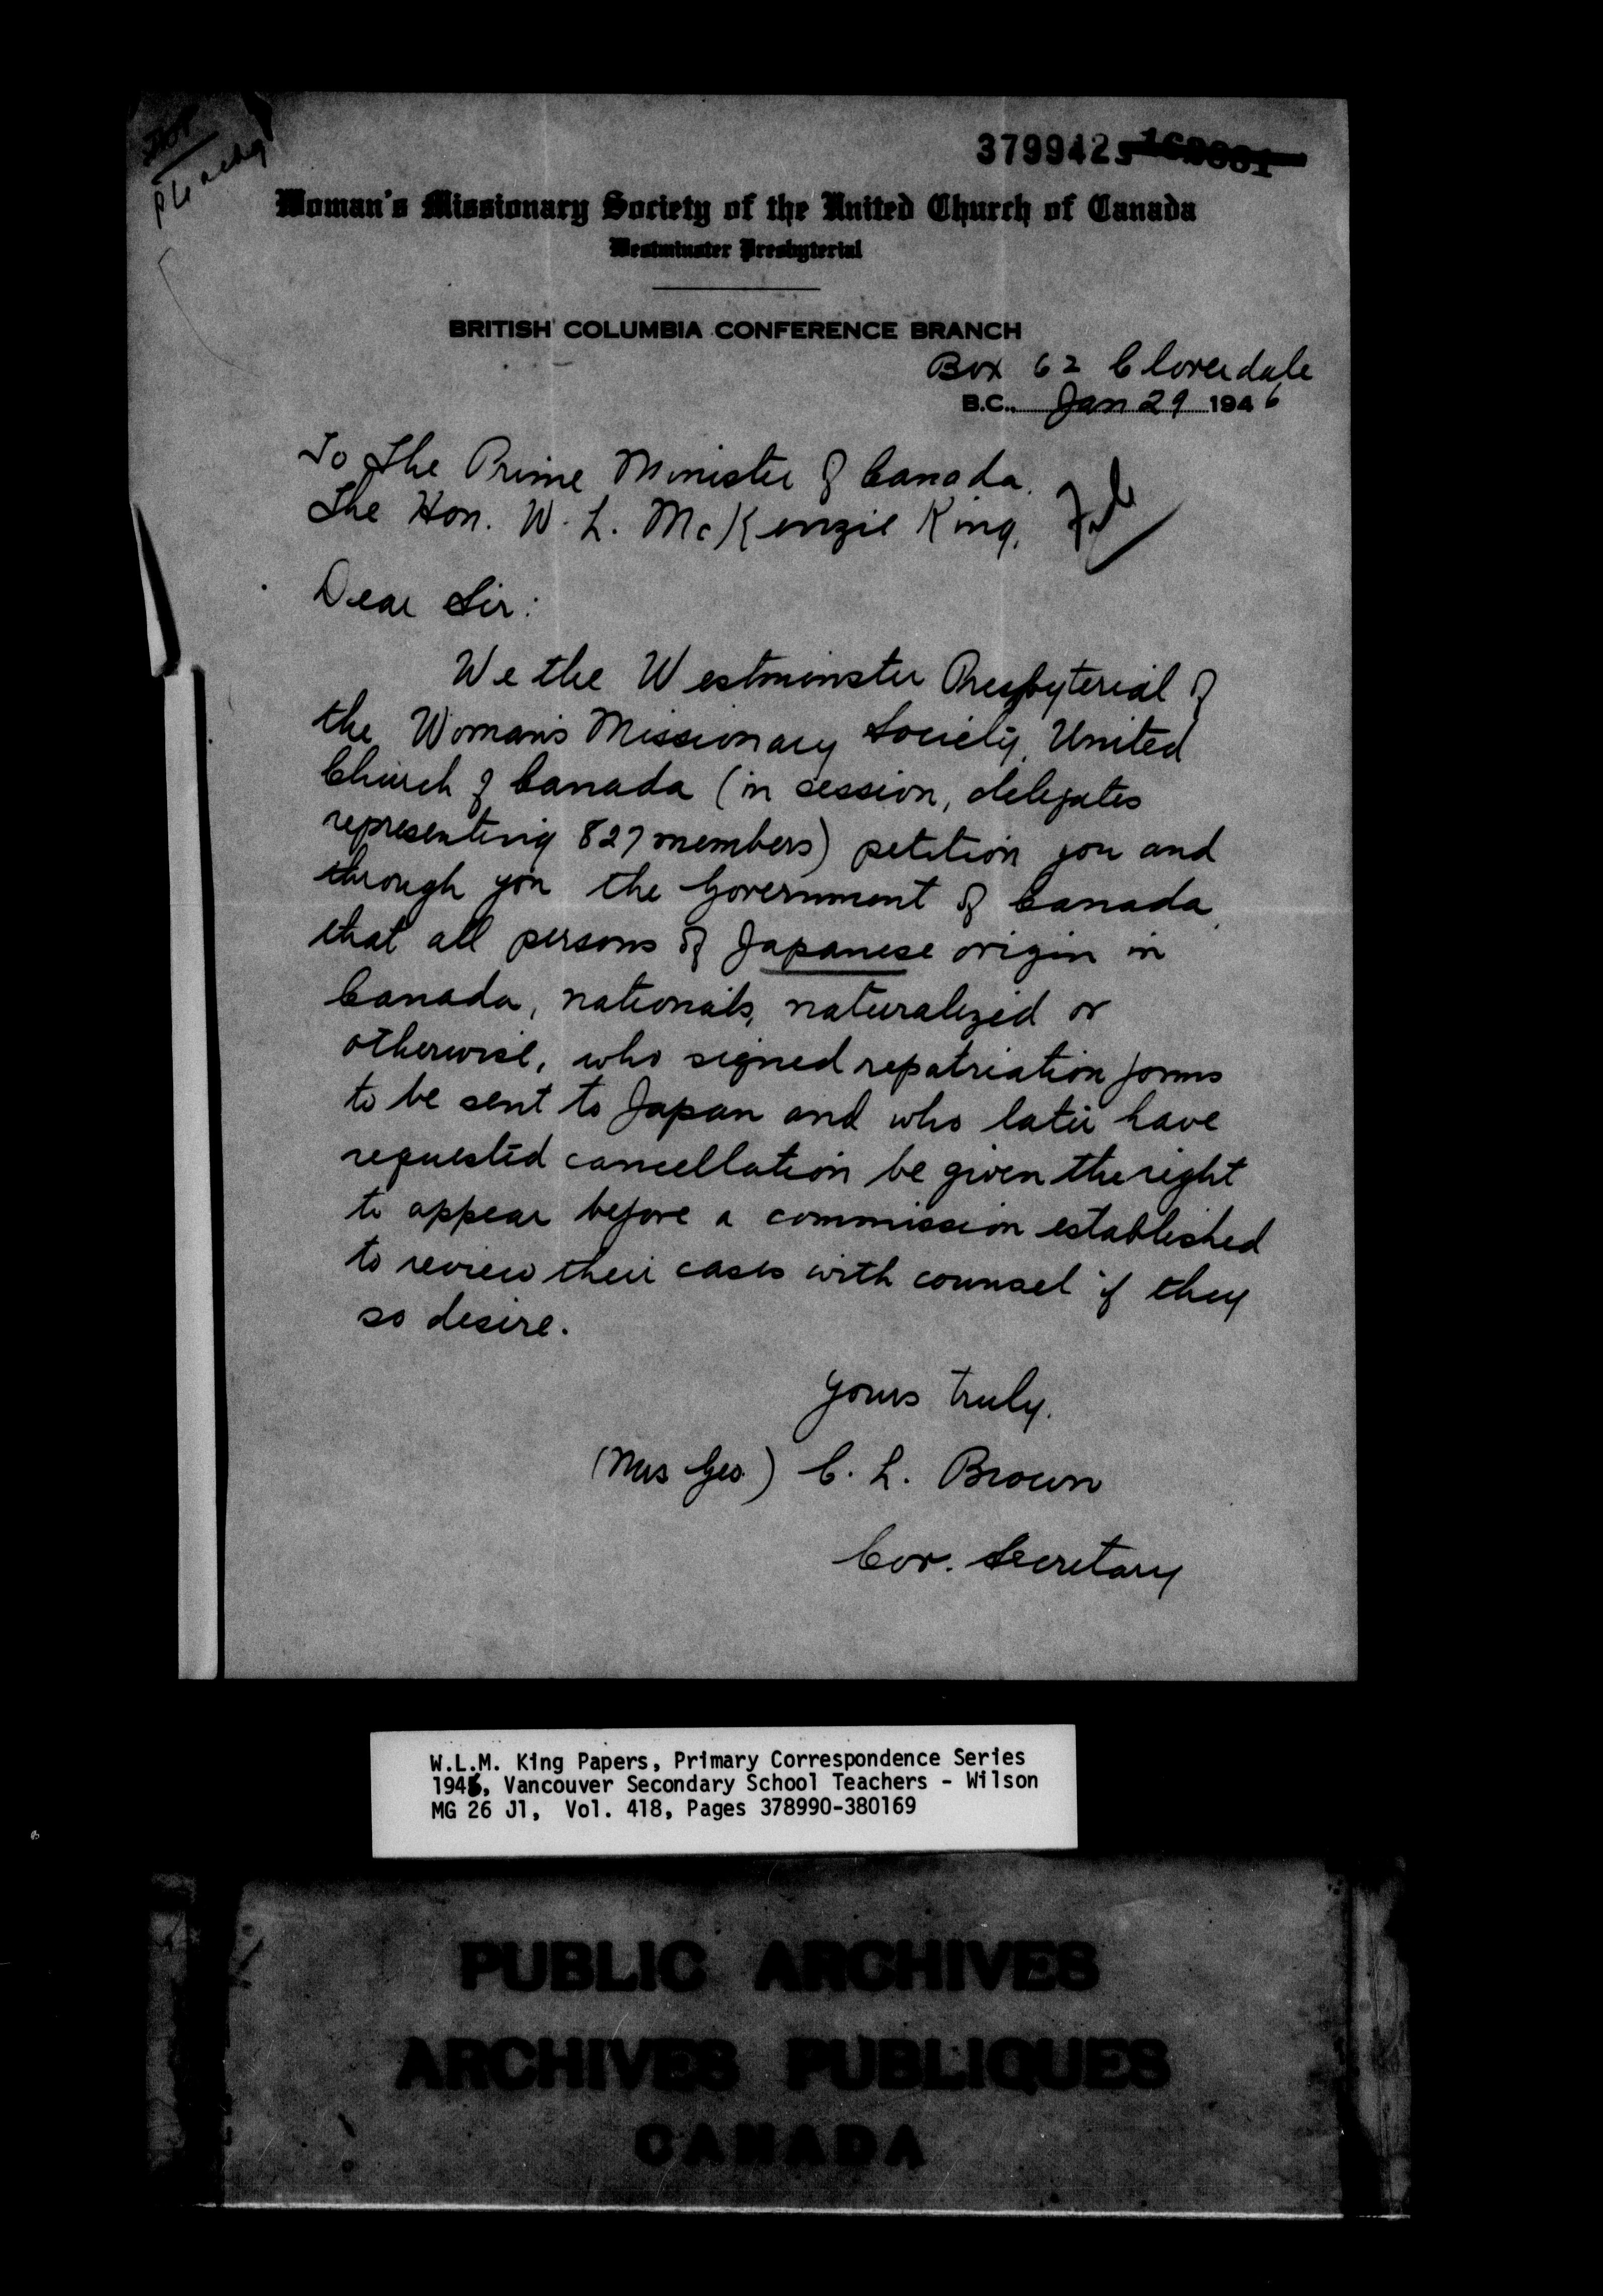 379942
Woman's Missionary Society of the United Church of Canada
Westminster Presbyterial
BRITISH COLUMBIA CONFERENCE BRANCH
Box 62 Cloverdale
B.C., Jan 29 1946
To The Prime Minister of Canada.
The Hon. W. L. McKenzie King.
Dear Sir:
We the Westminster Presbyterial of
the Woman's Missionary Society, United
Church of Canada (in session, delegates
representing 827 members) petition you and
through you the Government of Canada
that all persons of Japanese origin in
Canada, nationals, naturalized or
otherwise, who signed repatriation forms
to be sent to Japan and who later have
requested cancellation be given the right
to appear before a commission established
to review their cases with counsel if they
so desire.
Yours truly.
(Mrs Geo.) C. L. Brown
Cor. Secretary
W.L.M. King Papers, Primary Correspondence Series
1946, Vancouver Secondary School Teachers - Wilson
MG 26 J1, Vol. 418, Pages 378990-380169
PUBLIC ARCHIVES
ARCHIVES PUBLIQUES
CANADA